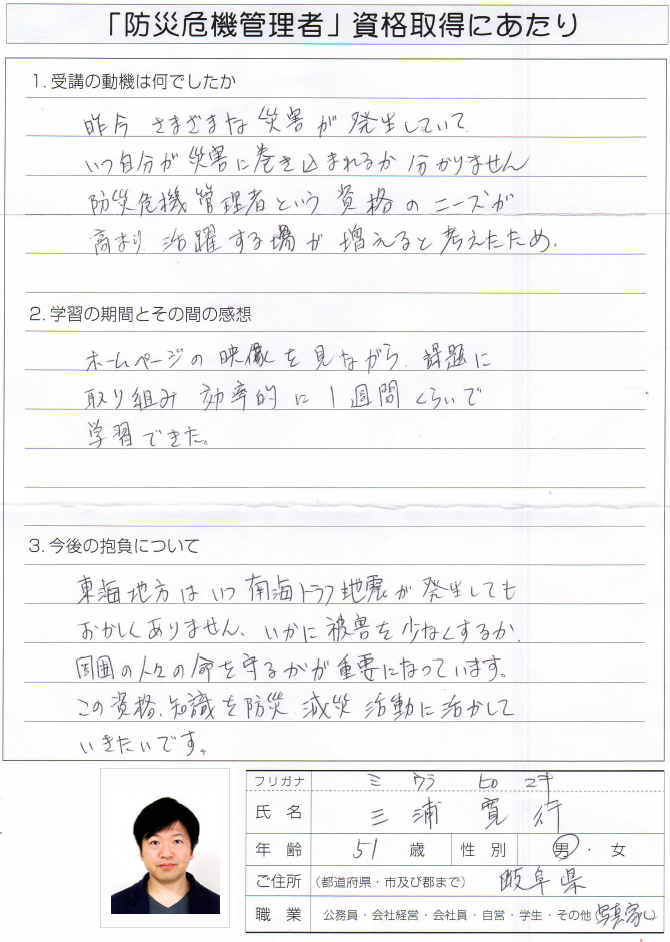 「防災危機管理者」資格取得にあたり
1. 受講の動機は何でしたか
昨今 さまざまな 災害が 発生していて、
いつ自分が 災害に巻き込まれるか 分かりません
防災危機管理者という 資格の ニーズが
高まり 活躍する場が 増えると 考えたため、
2. 学習の期間とその間の感想
ホームページの 映像を 見ながら、課題に
取り組み 効率的に 1週間くらいで
学習できた。
3. 今後の抱負について
東海地方は いつ 南海トラフ地震が 発生しても
おかしくありません、いかに被害を少なくするか、
周囲の人々の命を守るかが重要になっています。
この資格、知識を防災 減災 活動に活かして
いきたいです。
フリガナ ミ ウラ ヒロ ユキ
氏名 三浦 寛行
年齢 51 歳 性別 男・女
ご住所 (都道府県・市及び郡まで) 岐阜県
職業 公務員・会社経営・会社員・自営・学生・その他